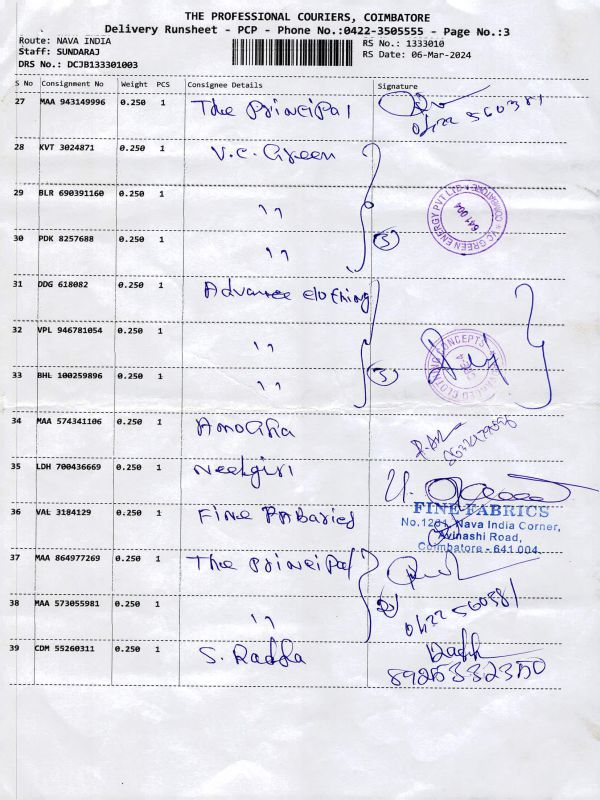 THE PROFESSIONAL COURIERS, COIMBATORE
Delivery Runsheet - PCP - Phone No.:0422-3505555 - Page No.:3
Route: NAVA INDIA
Staff: SUNDARAJ
DRS No.: DCJB133301003
RS No.: 1333010
RS Date: 06-Mar-2024
S No Consignment No Weight PCS Consignee Details Signature
27 MAA 943149996 0.250 1 The Principal
0422 560381
28 KVT 3024871 0.250 1 V.C. Green
29 BLR 690391160 0.250 1 ,,
30 PDK 8257688 0.250 1 ,, 3
VC GREEN ENERGY PVT LTD * COIMBATORE *
641 004
31 DDG 618082 0.250 1 Advance clothing
32 VPL 946781054 0.250 1 ,,
33 BHL 100259896 0.250 1 ,, 3
ADVANCED CLOTHING CONCEPTS
34 MAA 574341106 0.250 1 Amogha
35 LDH 700436669 0.250 1 Neelgiri
36 VAL 3184129 0.250 1 Fine Fabaries
FINE FABRICS
No.1281, Nava India Corner,
Avinashi Road,
Coimbatore - 641 004.
37 MAA 864977269 0.250 1 The Principal
38 MAA 573055981 0.250 1 ,, 2
0422 560381
39 CDM 55260311 0.250 1 S. Radha
Radh
8925332350